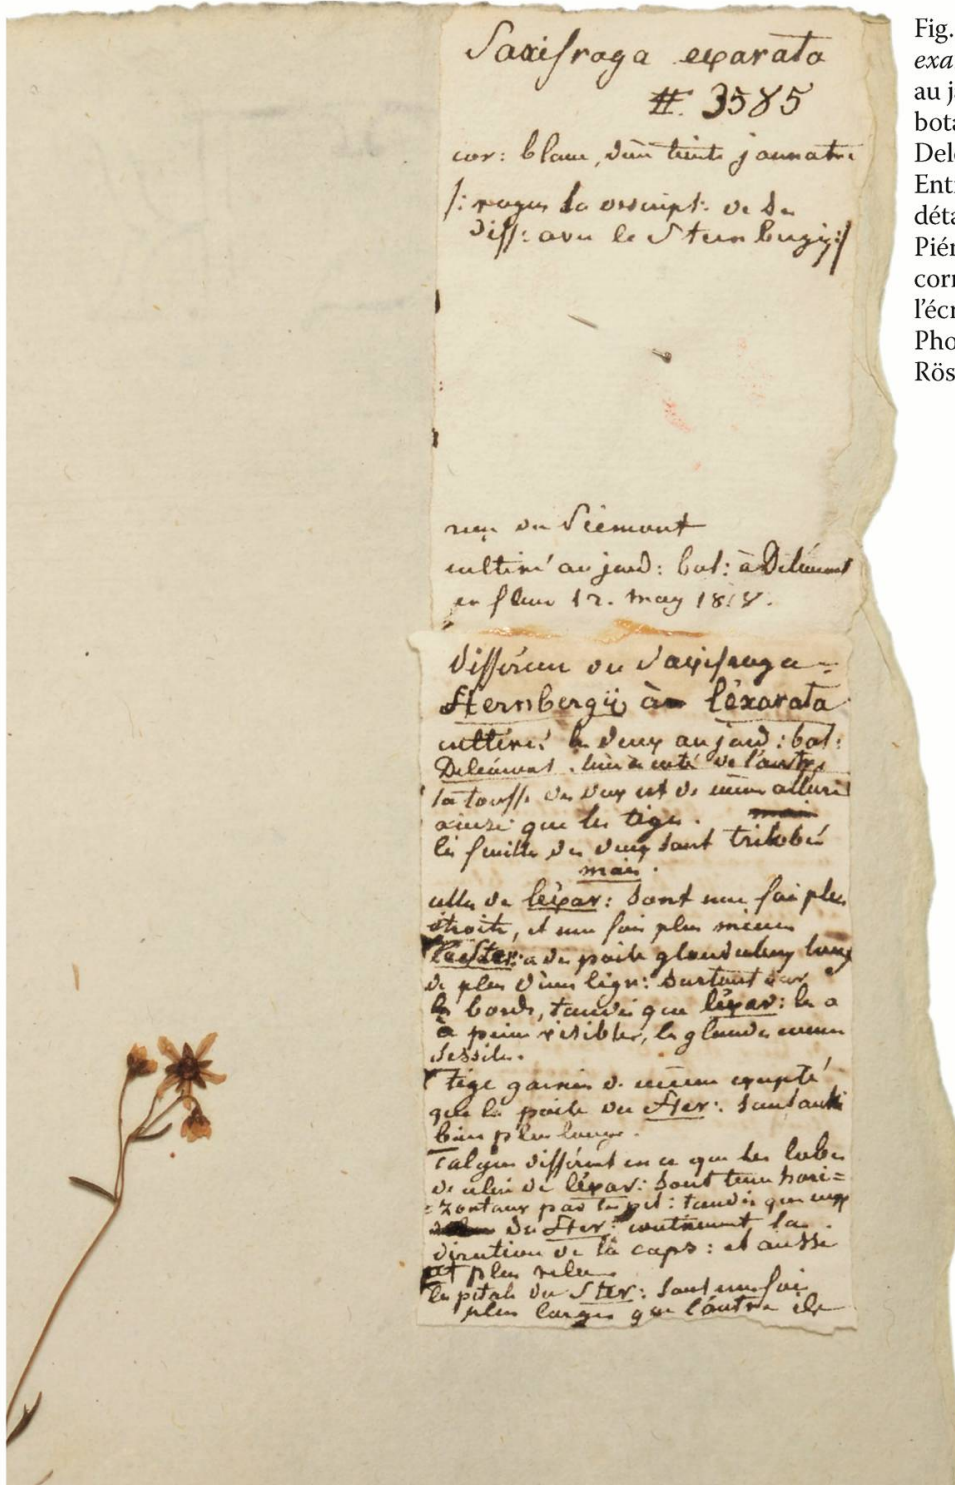 Saxifraga exarata
#. 3585
cor: blanc, d'un teinte jaunatre
/: voyez la descript: de sa
diff: avec le Sternbergij:/
du Piemont
cultivé au jard: bot: à Delémont
en fleur 12. may 1818.
différence du Saxifraga =
Sternbergij à l'exarata
cultivé: les deux au jard: bot:
Delémont. l'un a coté de l'autre
la touffe des deux est de même allure
ainsi que les tiges.
les feuilles des deux sont trilobés
mais.
celles de l'exar: sont une fois plus
étroite, et une fois plus minces
le Ster: a des poils glanduleux long
de plus d'une lign: surtout sur
les bords, tandis que l'exar: les a
à peine visibles, les glandes même
sessiles.
Tige garnies de même
que les poils du Ster: sont aussi
bien plus longs.
Calyces différent en ce que les lobes
de celui de l'exar: sont tenu hori=
=zontaux par les pet: tandis que ceux
du Ster: continuent la
direction de la caps: et aussi
plus
les petals du Ster: sont une fois
plus larges que l'autre
Fig.
exa
au j
bota
Del
Ent
déta
Piér
corr
l'écr
Pho
Rös